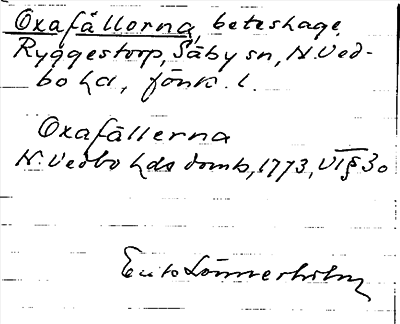 Oxafällorna, beteshage,
Ryggestorp, Säby sn, N. Ved-
bo hd, Jönk. l.
Oxafällerna
N. Vedbo hds domb, 1773, VI § 30
Erik Lönnerholm